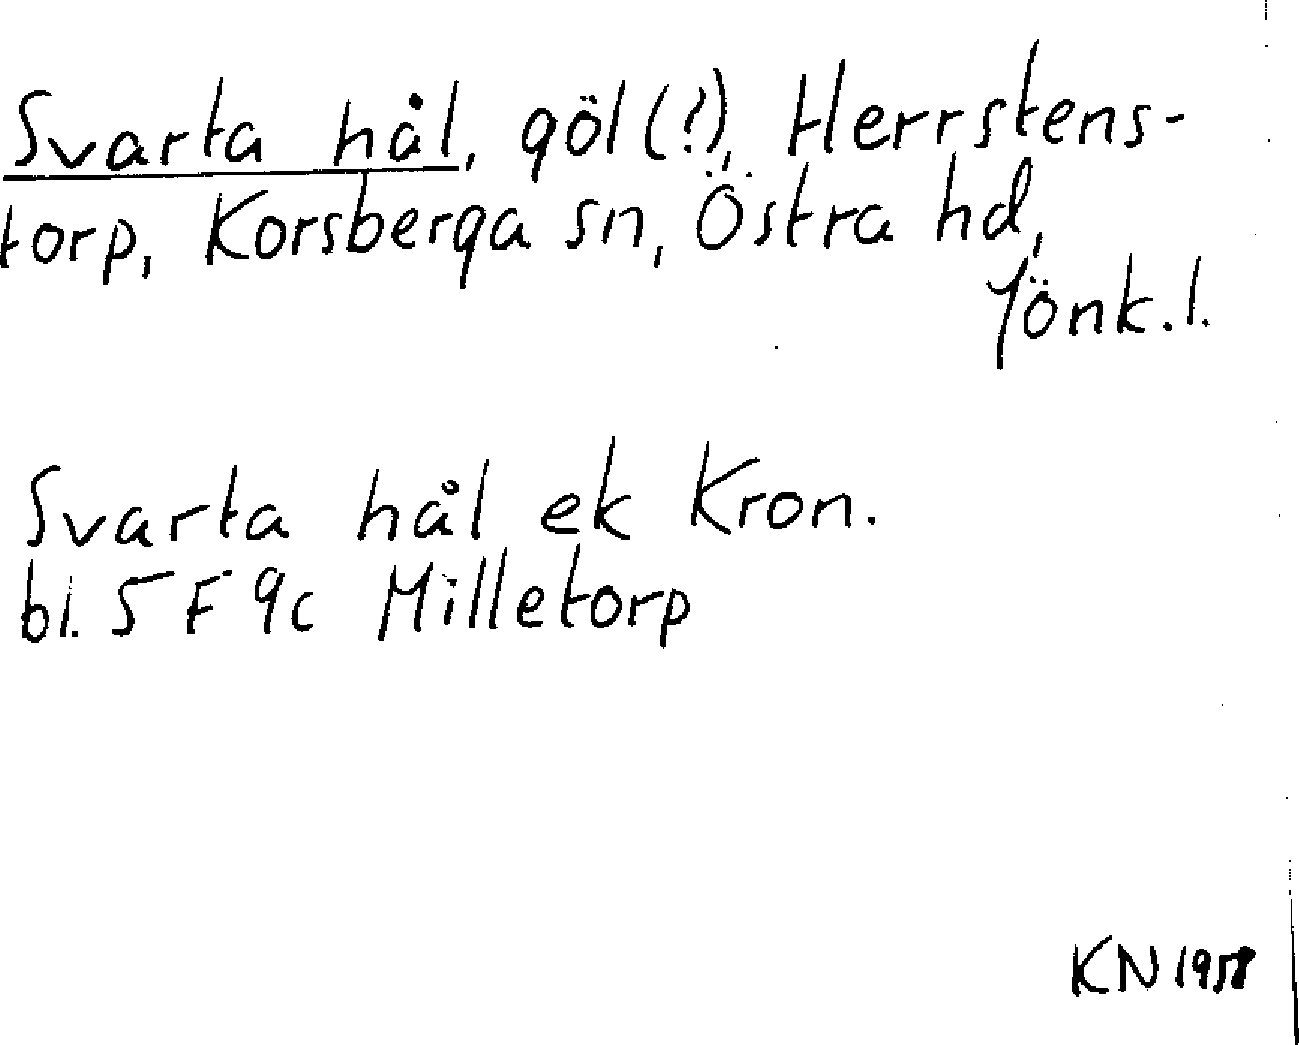 Svarta hål, göl (?), Herrstens-
torp, Korsberga sn, Östra hd,
Jönk. l.
Svarta hål ek Kron.
bl. 5 F 9c Milletorp
KN 1958